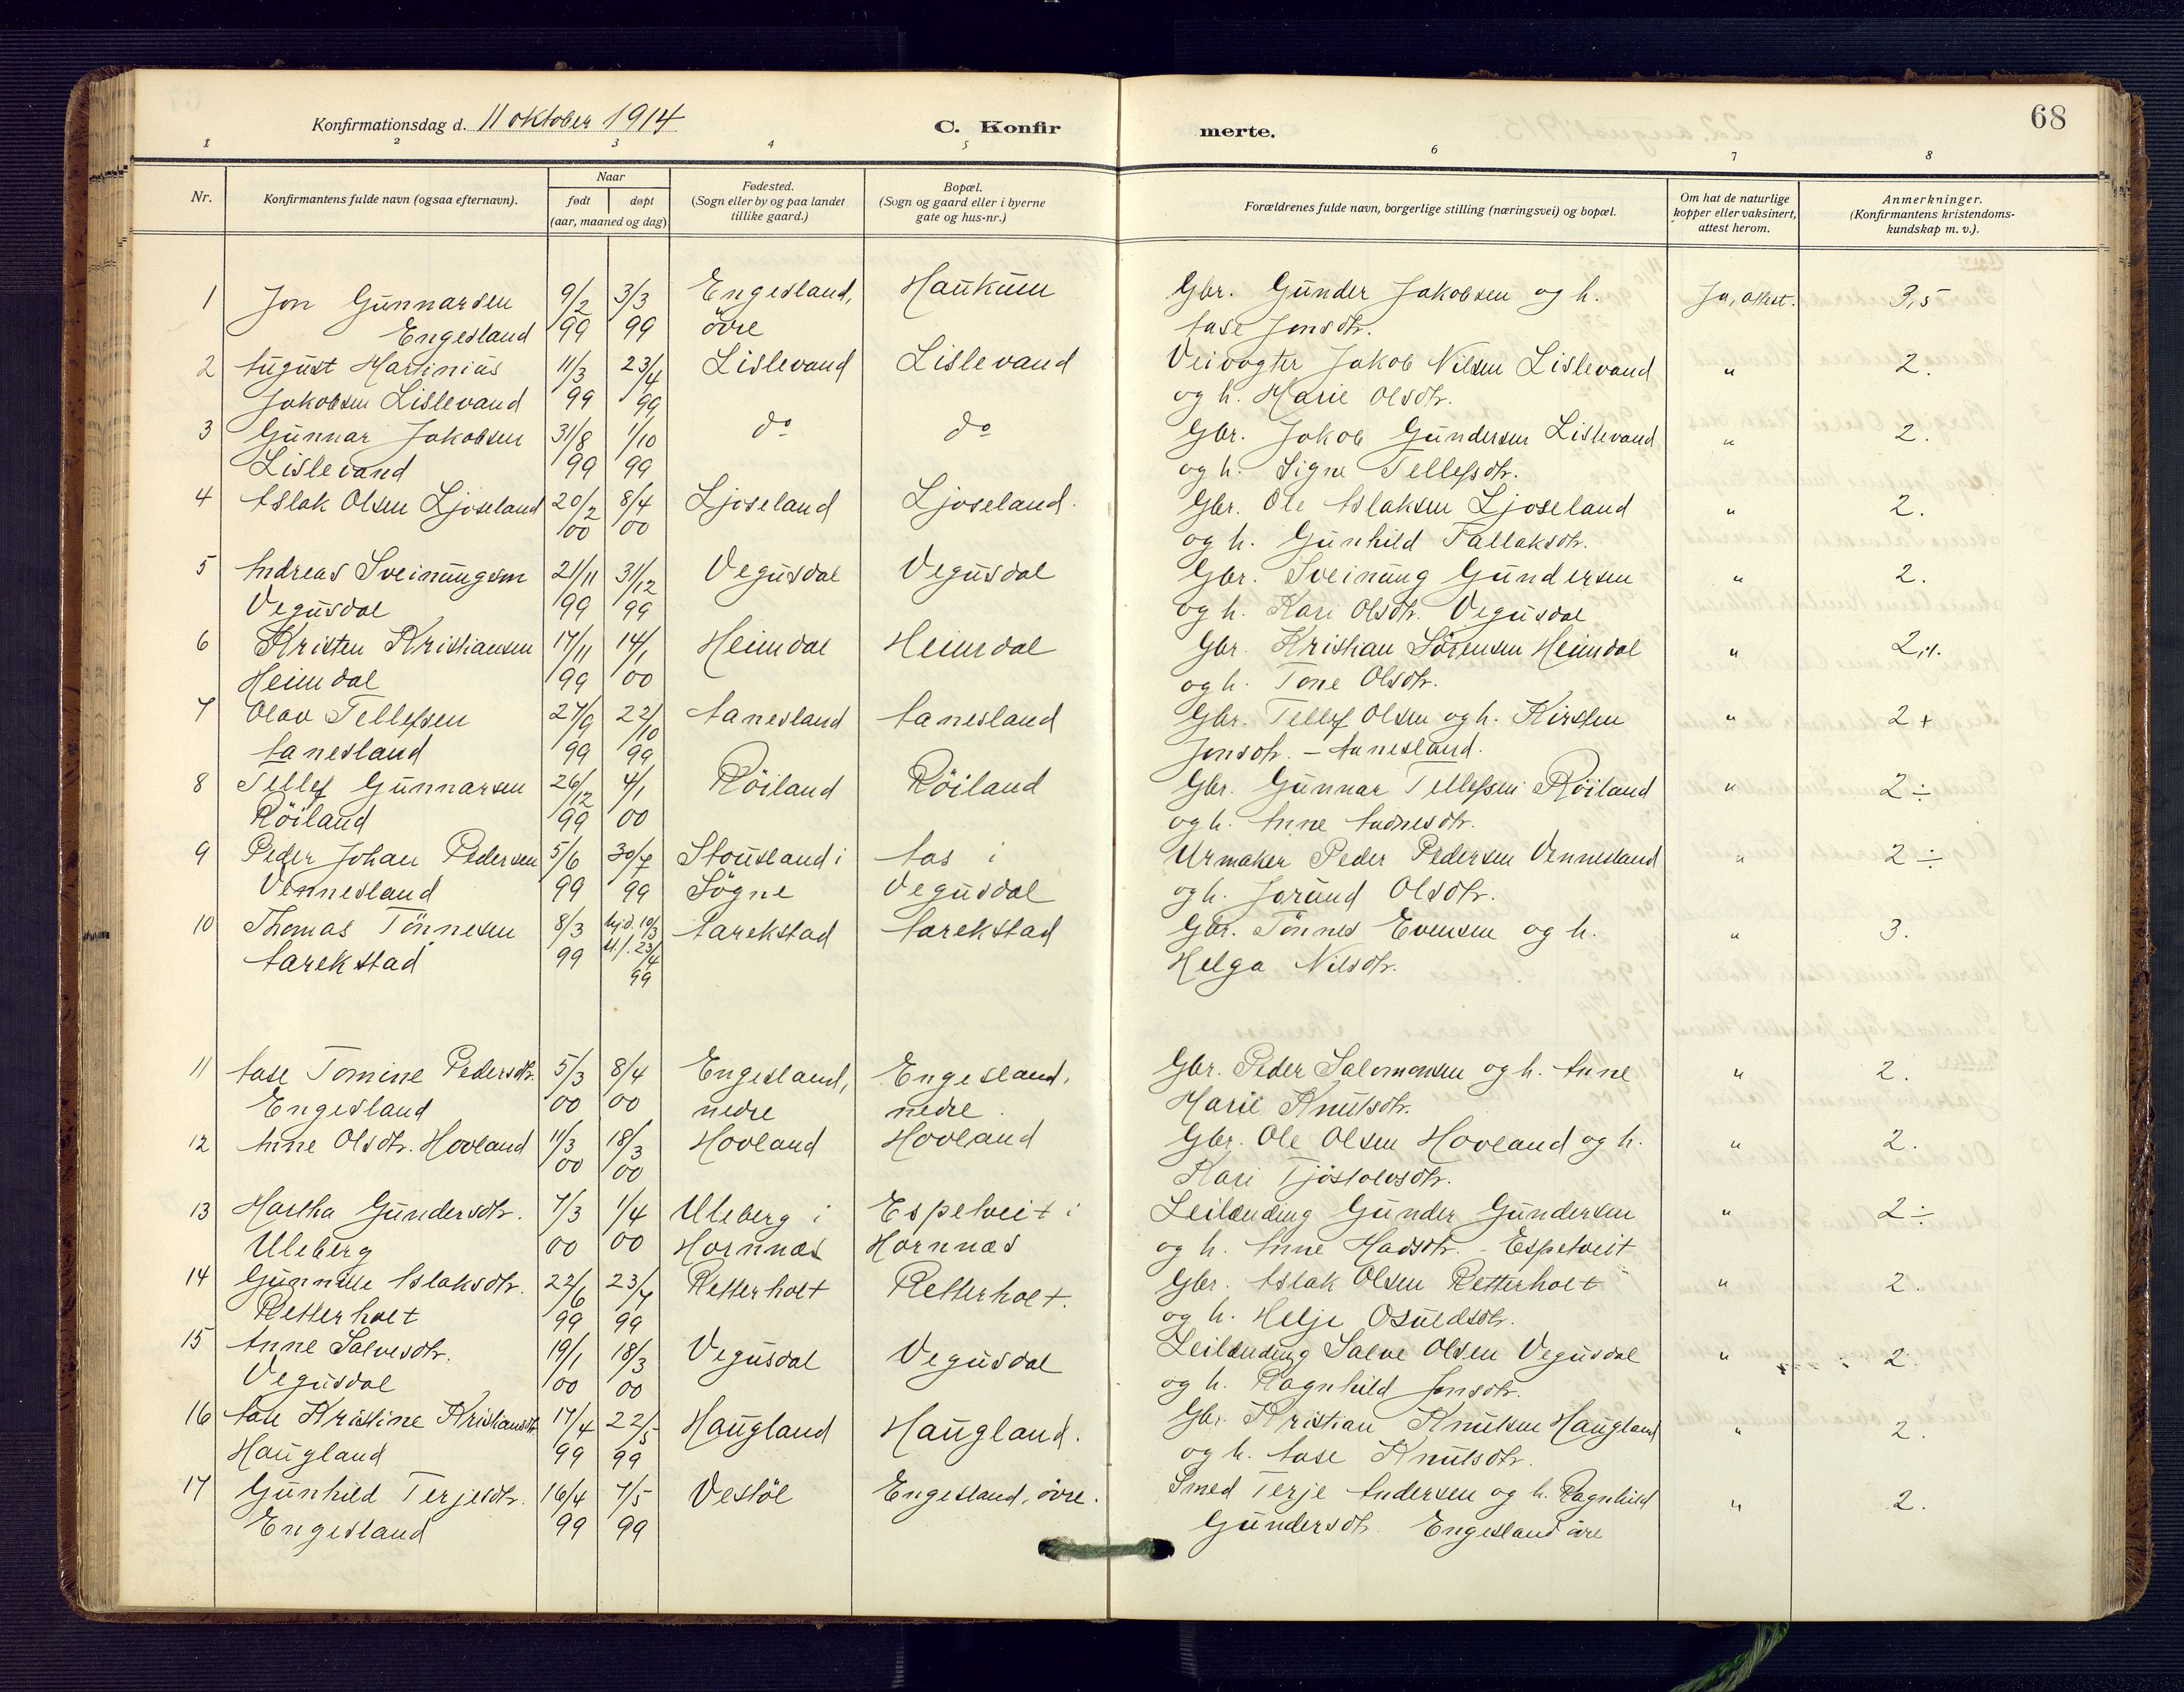 68
Konfirmationsdag d. 11 oktober 1914
C. Konfir merte.
1 2 3 4 5 6 7 8
Nr. Konfirmantens fulde navn (ogsaa efternavn). Naar født døpt (aar, maaned og dag) Fødested. (Sogn eller by og paa landet tillike gaard.) Bopæl. (Sogn og gaard eller i byerne gate og hus-nr.) Forældrenes fulde navn, borgerlige stilling (næringsvei) og bopæl. Om hat de naturlige kopper eller vaksinert, attest herom. Anmerkninger. (Konfirmantens kristendoms-kundskap m. v.).
1 Jon Gunnarsen 9/2 3/3 Engesland, Haukum Gbr. Gunder Jakobsen og h. Ja, attest. 3,5
Engesland 99 99 övre Aase Jonsdtr.
2 August Martinius 11/3 23/4 Lislevand Lislevand Veivogter Jakob Nilsen Lislevand " 2.
Jakobsen Lislevand 99 99 og h. Marie Olsdtr.
3 Gunnar Jakobsen 31/8 1/10 do do Gbr. Jakob Gundersen Lislevand " 2.
Lislevand 99 99 og h. Signe Tellefsdtr.
4 Aslak Olsen Ljoseland 20/2 8/4 Ljoseland Ljoseland. Gbr. Ole Aslaksen Ljoseland " 2.
00 00 og h. Gunhild Tallaksdtr.
5 Andreas Sveinungsen 21/11 31/12 Vegusdal Vegusdal Gbr. Sveinung Gundersen " 2.
Vegusdal 99 99 og h. Kari Olsdtr. Vegusdal
6 Kristen Kristiansen 17/11 14/1 Heimdal Heimdal Gbr. Kristian Sörensen Heimdal "
Heimdal 99 00 og h. Tone Olsdtr.
7 Olav Tellefsen 27/9 22/10 Aanesland Aanesland Gbr. Tellef Olsen og h. Kirsten " 2+
Aanesland 99 99 Jonsdtr. - Aanesland.
8 Tellef Gunnarsen 26/12 4/1 Röiland Röiland Gbr. Gunnar Tellefsen Röiland " 2÷
Röiland 99 00 og h. Anne Aadnesdtr.
9 Peder Johan Pedersen 5/6 30/7 Stousland i Aas i Urmaker Peder Pedersen Vennesland " 2÷
Vennesland 99 99 Sögne Vegusdal og h. Jorund Olsdtr.
10 Thomas Tönnesen 8/3 hjd. 10/3 Aarekstad Aarekstad Gbr. Tönnes Evensen og h. " 3.
Aarekstad 99 st.f. 23/4 Helga Nilsdtr.
99
11 Aase Tomine Pedersdtr. 5/3 8/4 Engesland, Engesland, Gbr. Peder Salomonsen og h. Anne " 2.
Engesland 00 00 nedre nedre. Marie Knutsdtr.
12 Anne Olsdtr. Hovland 11/3 18/3 Hovland Hovland Gbr. Ole Olsen Hovland og h. " 2.
00 00 Kari Tjöstolvsdtr.
13 Martha Gundersdtr. 7/3 1/4 Uleberg i Espetveit i Leilænding Gunder Gundersen " 2÷
Uleberg 00 00 Hornnæs Hornnæs og h. Anne Madsdtr. - Espetveit
14 Gunnille Aslaksdtr. 22/6 23/7 Retterholt Retterholt. Gbr. Aslak Olsen Retterholt " 2.
Retterholt 99 99 og h. Helje Osuldsdtr.
15 Anne Salvesdtr. 19/1 18/3 Vegusdal Vegusdal Leilænding Salve Olsen Vegusdal " 2.
Vegusdal 00 00 og h. Ragnhild Jonsdtr.
16 Aase Kristine Kristiansdtr 17/4 22/5 Haugland Haugland. Gbr. Kristian Knutsen Haugland " 2.
Haugland 99 99 og h. Aase Knutsdtr.
17 Gunhild Terjesdtr. 16/4 7/5 Vestöl Engesland, övre. Smed Terje Andersen og h. Ragnhild " 2.
Engesland 99 99 Gundersdtr. Engesland övre